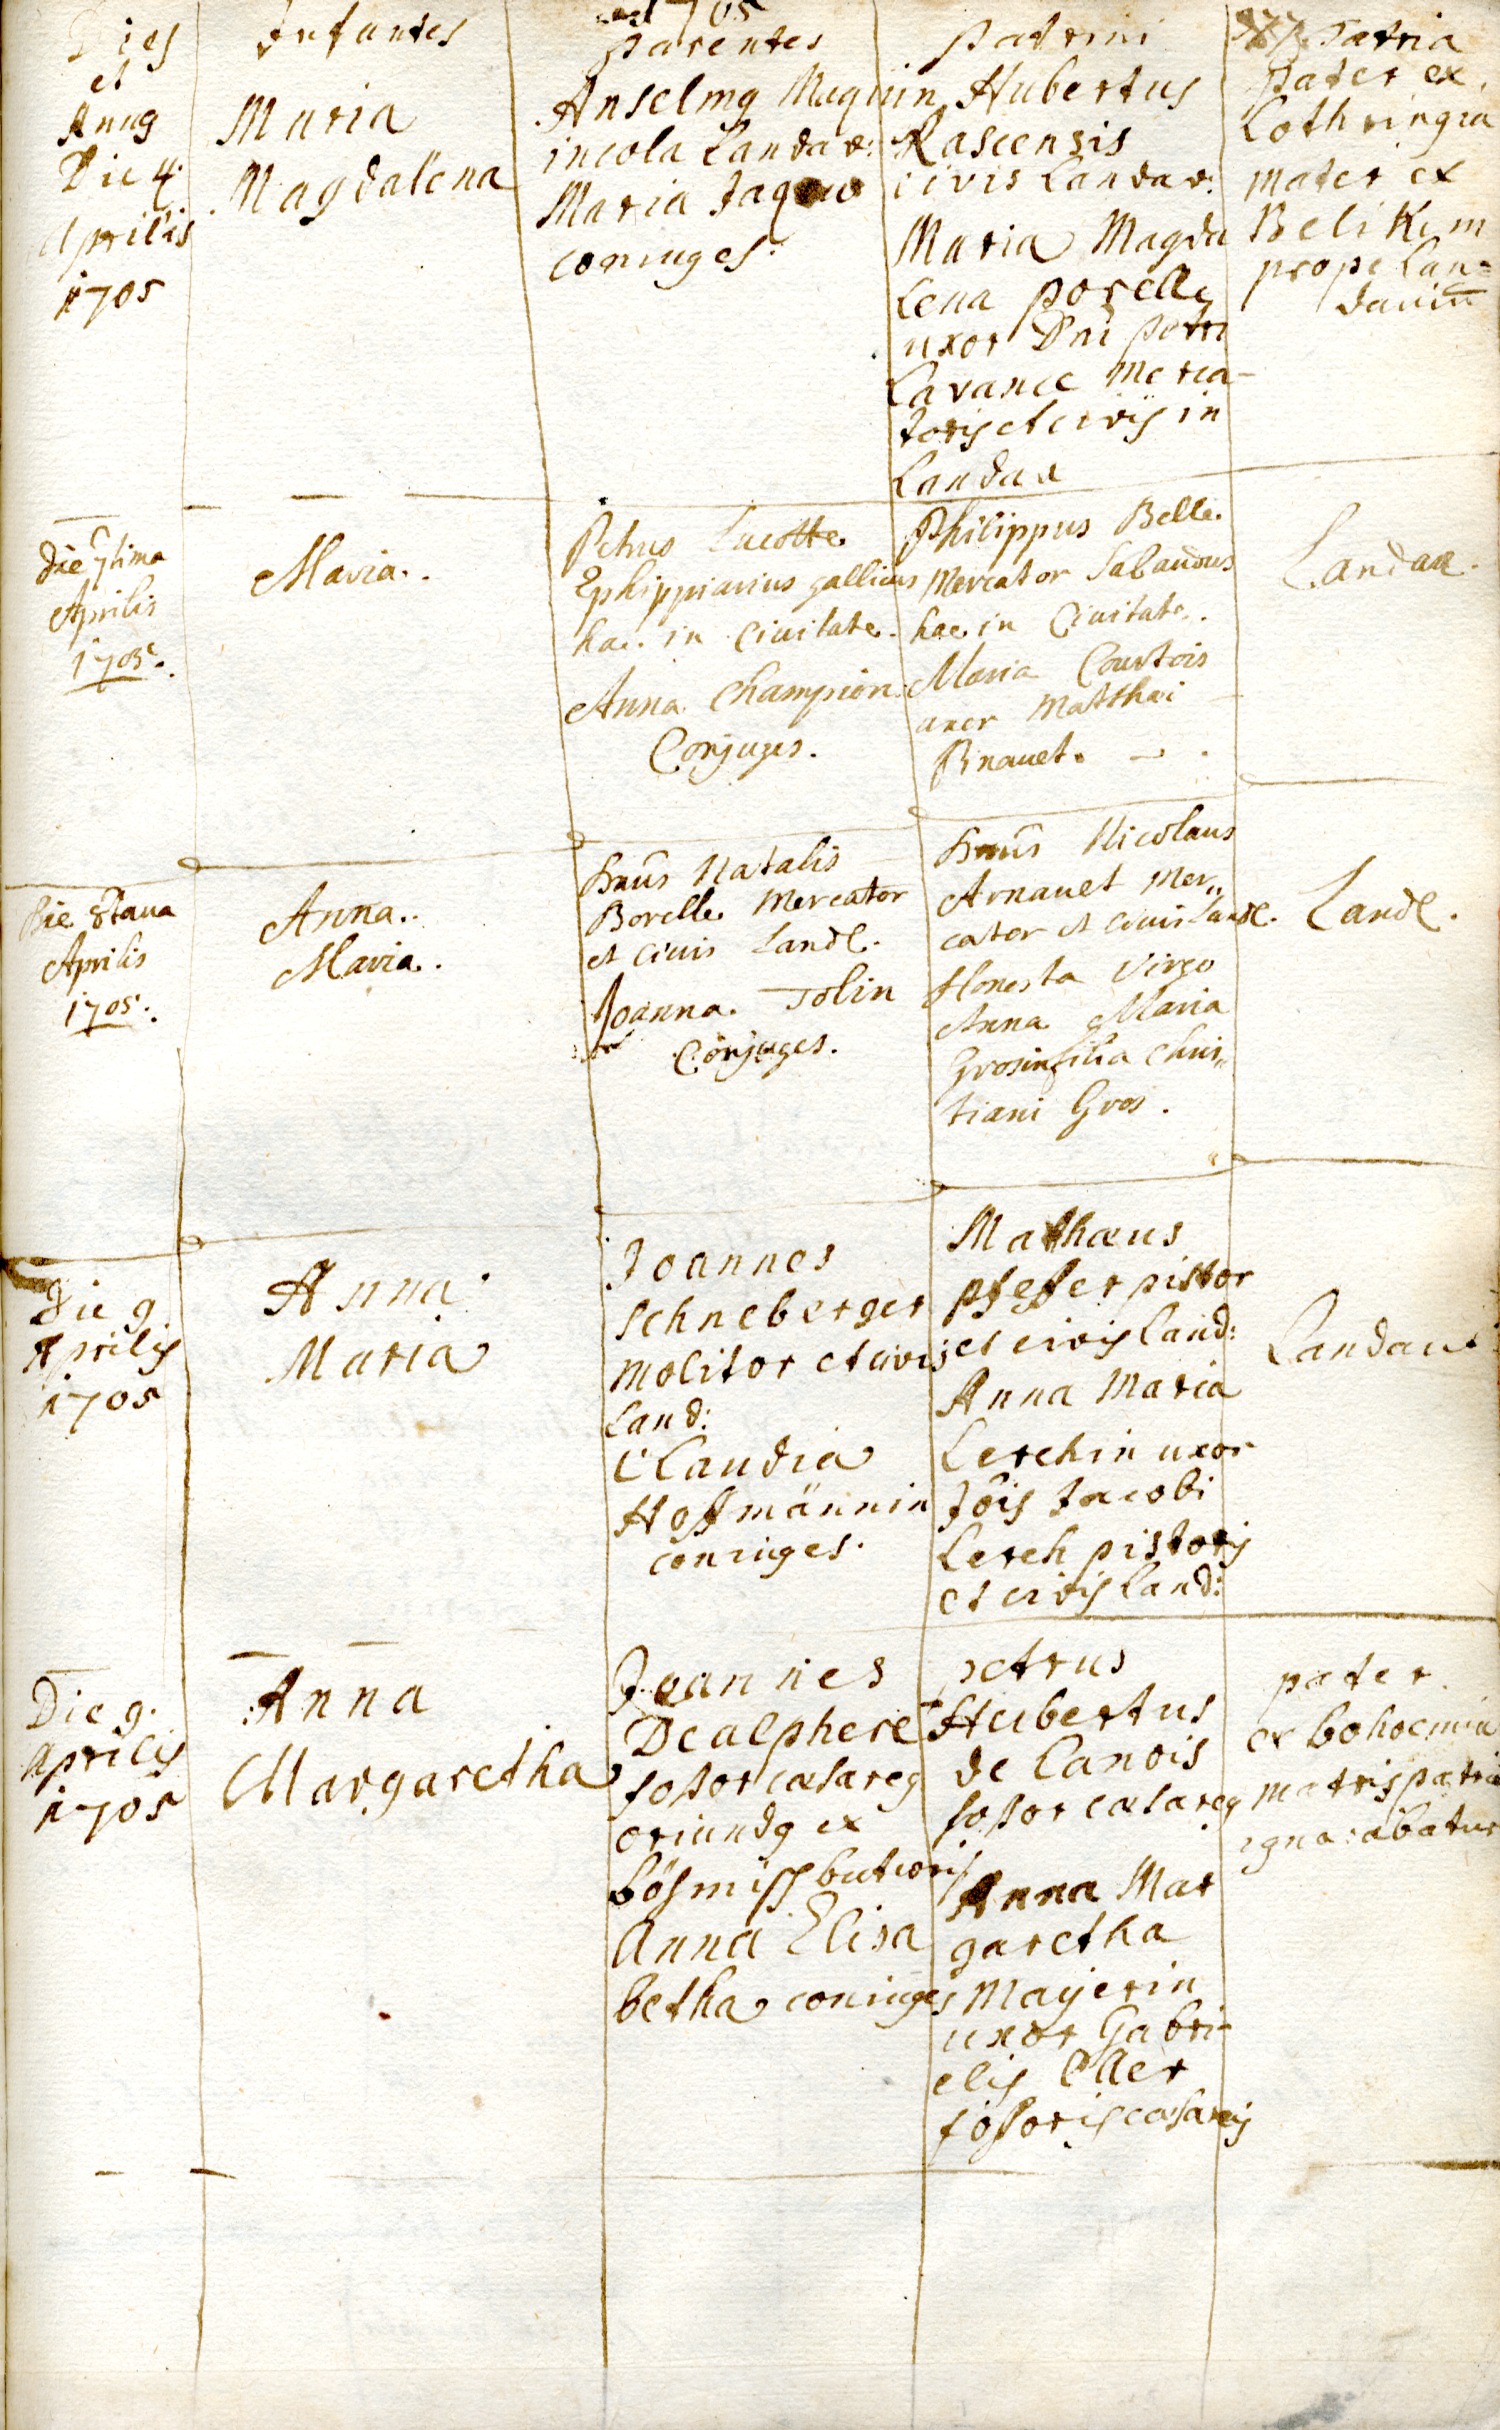 1705
Dies
et
Annq
Infantes
parentes
patrini
377. Patria
Die 4.
Aprilis
1705
Maria
Magdalena
Anselmq Maguin
incola Landav:
Maria
coniuges.
Hubertus
Rascensis
civis Landav:
Maria Magda
lena porelle
uxor Dni petri
Lavance merca-
toris et civis in
Landav
pater ex
Lothringia
mater ex
Belikem
prope Lan=
daviū
Die 7tima
Aprilis
1705.
Maria.
Petrus Lucotte
Ephippiarius gallicus
hac in Ciuitate.
Anna Champion
Conjuges.
Philippus Belle.
Mercator Sabaudus
hac in Ciuitate.
Maria Courtois
uxor Matthaei
Landaa.
Die 8taua
Aprilis
1705.
Anna.
Maria.
Dnūs Natalis
Borelle Mercator
et Ciuis Landl.
Joanna Tolin
Conjuges.
Dnūs Nicolaus
Arnauet Mer„
cator et Ciuis Landl.
Honesta Virgo
Anna Maria
Grosin filia Chris„
tiani Gros.
Landl.
Die 9
Aprilis
1705
Anna
Maria
Joannes
Schneberger
molitor et civis
Land:
Claudia
Hoffmännin
coniuges.
Mathaeus
Pfefer pistor
et civis Land:
Anna Maria
Lerchin uxor
Jōis Jacobi
Lerch pistoris
et civis Land:
Landau
Die 9.
Aprilis
1705
Anna
Margaretha
Joannes
Dealphere
fossor caesareq
oriundq ex
Anna Elisa
betha coniuges
petrus
Hubertus
de Lanois
fossor caesareq
Anna Mar
garetha
Mayerin
uxor Gabri-
elis
fossoris caesareis
pater
ex bohoemia
matris patria
ignorabatur